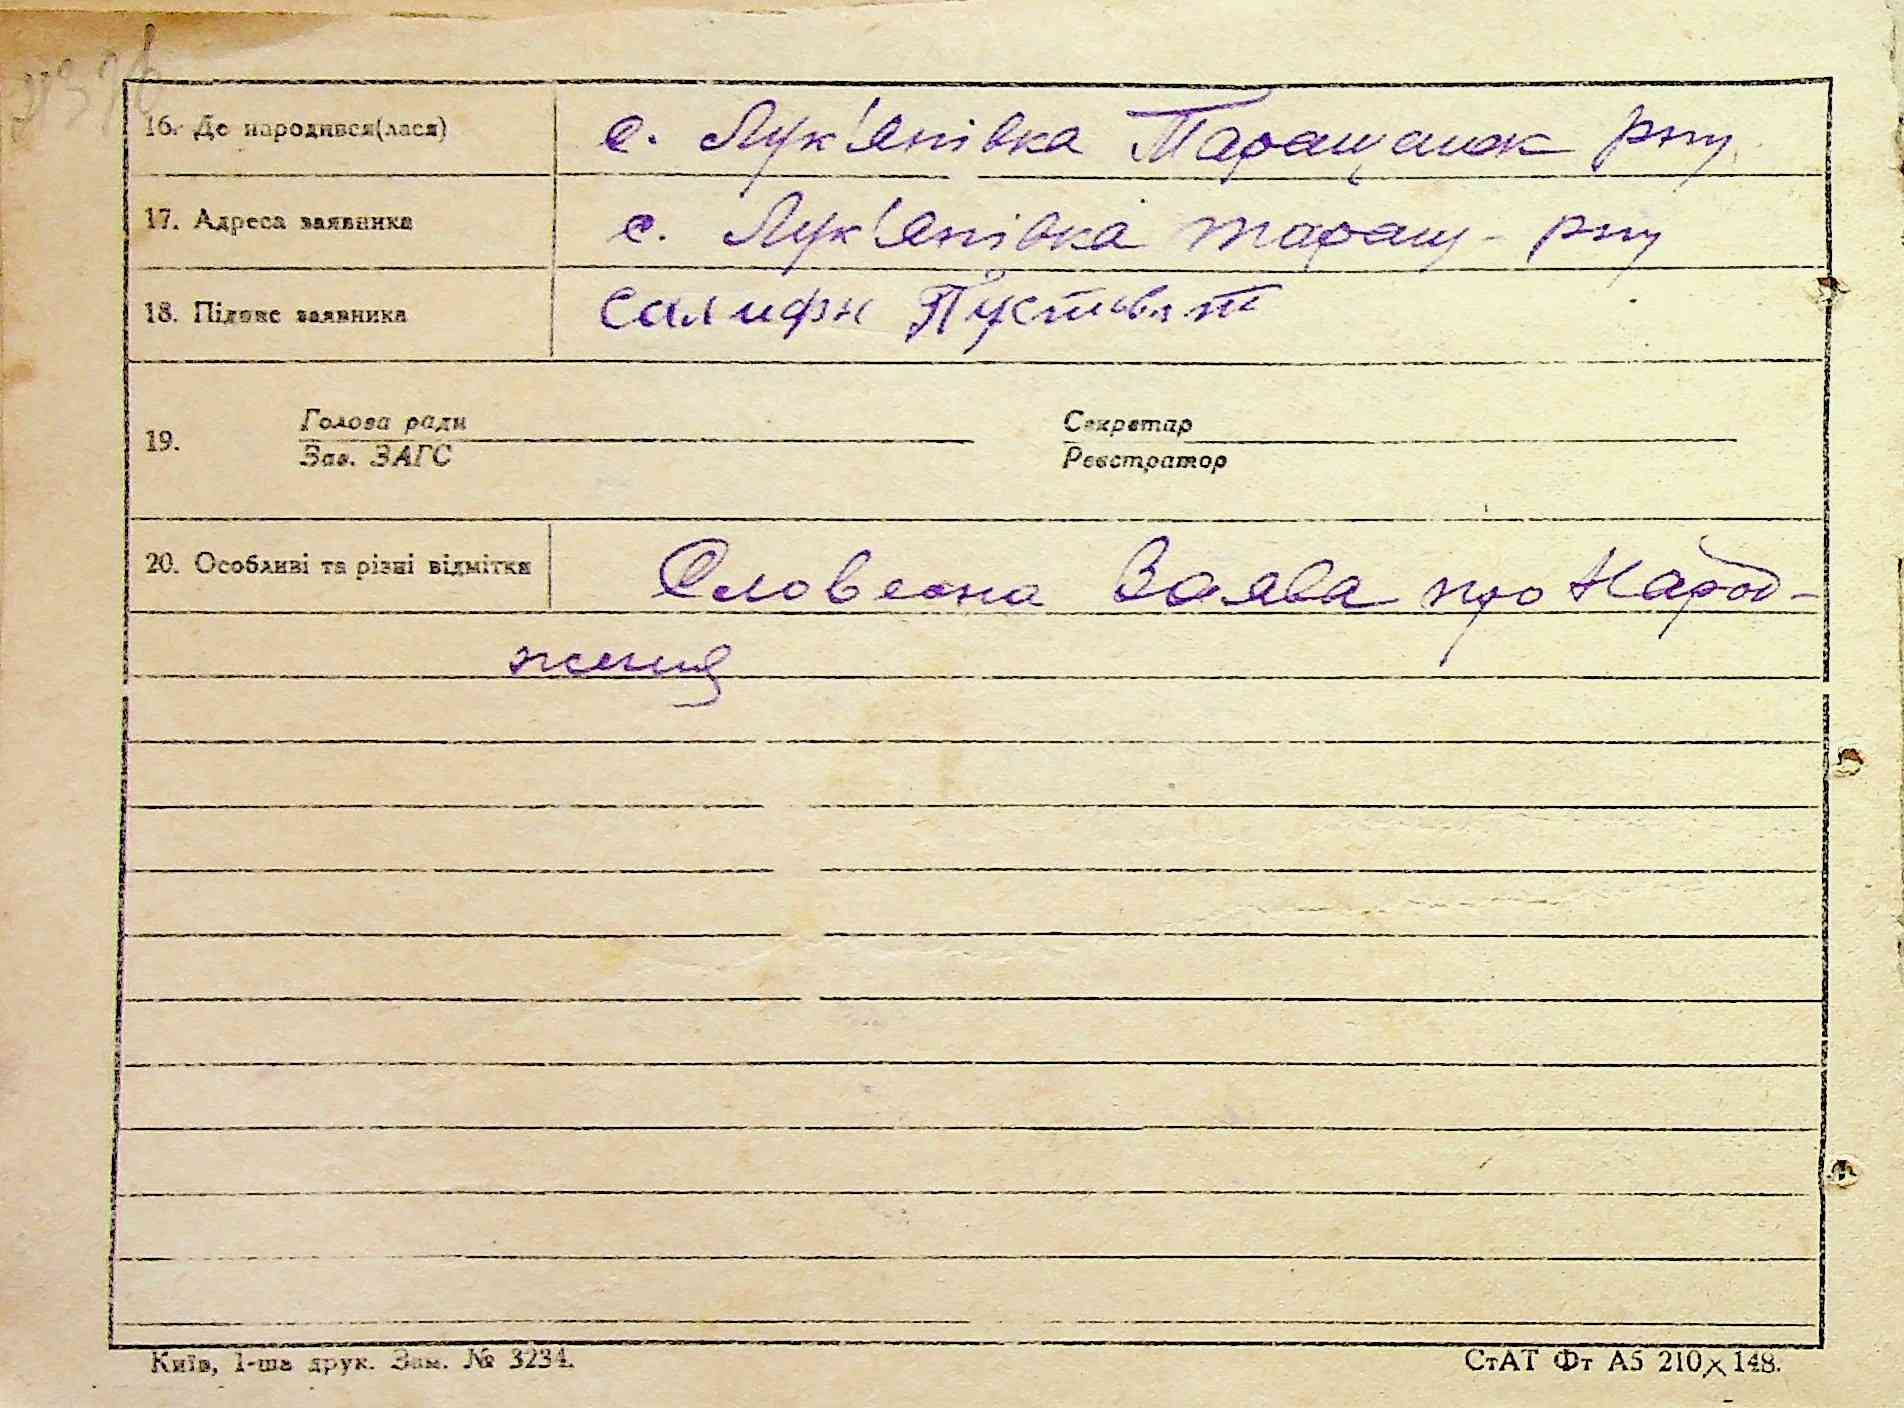 16. Де народився(лася) с. Лук'янівка Таращанск рну
17. Адреса заявника с. Лук'янівка таращ- рну
18. Підпис заявника
Голова ради Секретар
19.
Зав. ЗАГС Реєстратор
20. Особливі та різні відмітки Словесна Заява про Народ-
ження
Київ, 1-ша друк. Зам. № 3234. СтАТ Фт А5 210×148.